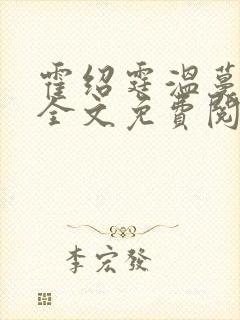 霍绍霆温蔓
全文免費閱
李宏發